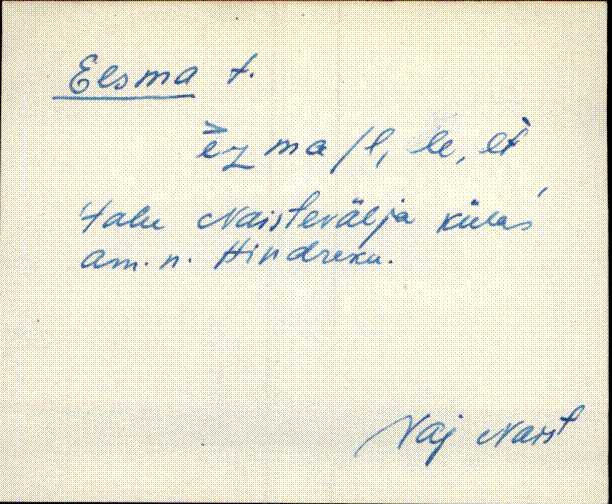 Eesma t.
èzma/l, le, lt
talu Naistevälja külas
am. n. Hindreku.
Vaj Naist